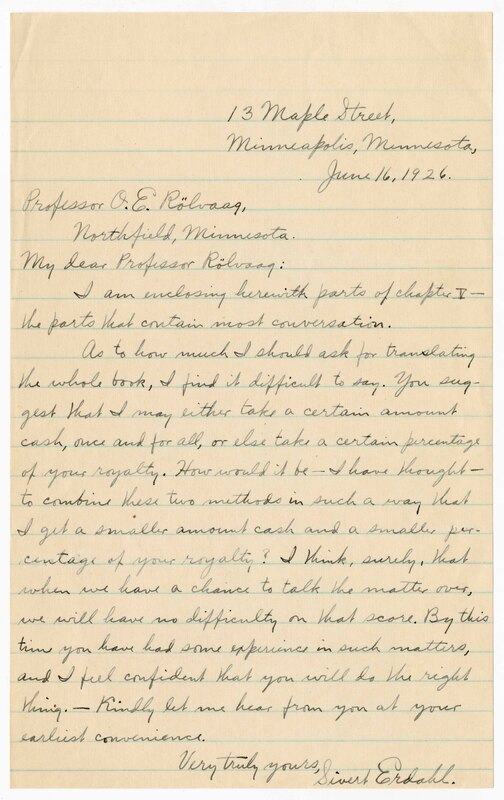 13 Maple Street,
Minneapolis, Minnesota,
June 16, 1926.
Professor O. E. Rölvaag,
Northfield, Minnesota.
My dear Professor Rölvaag:
I am enclosing herewith parts of chapter V —
the parts that contain most conversation.
As to how much I should ask for translating
the whole book, I find it difficult to say. You sug-
gest that I may either take a certain amount
cash, once and for all, or else take a certain percentage
of your royalty. How would it be — I have thought —
to combine these two methods in such a way that
I get a smaller amount cash and a smaller per-
centage of your royalty? I think, surely, that
when we have a chance to talk the matter over,
we will have no difficulty on that score. By this
time you have had some experience in such matters,
and I feel confident that you will do the right
thing. — Kindly let me hear from you at your
earliest convenience.
Very truly yours,
Sivert Erdahl.